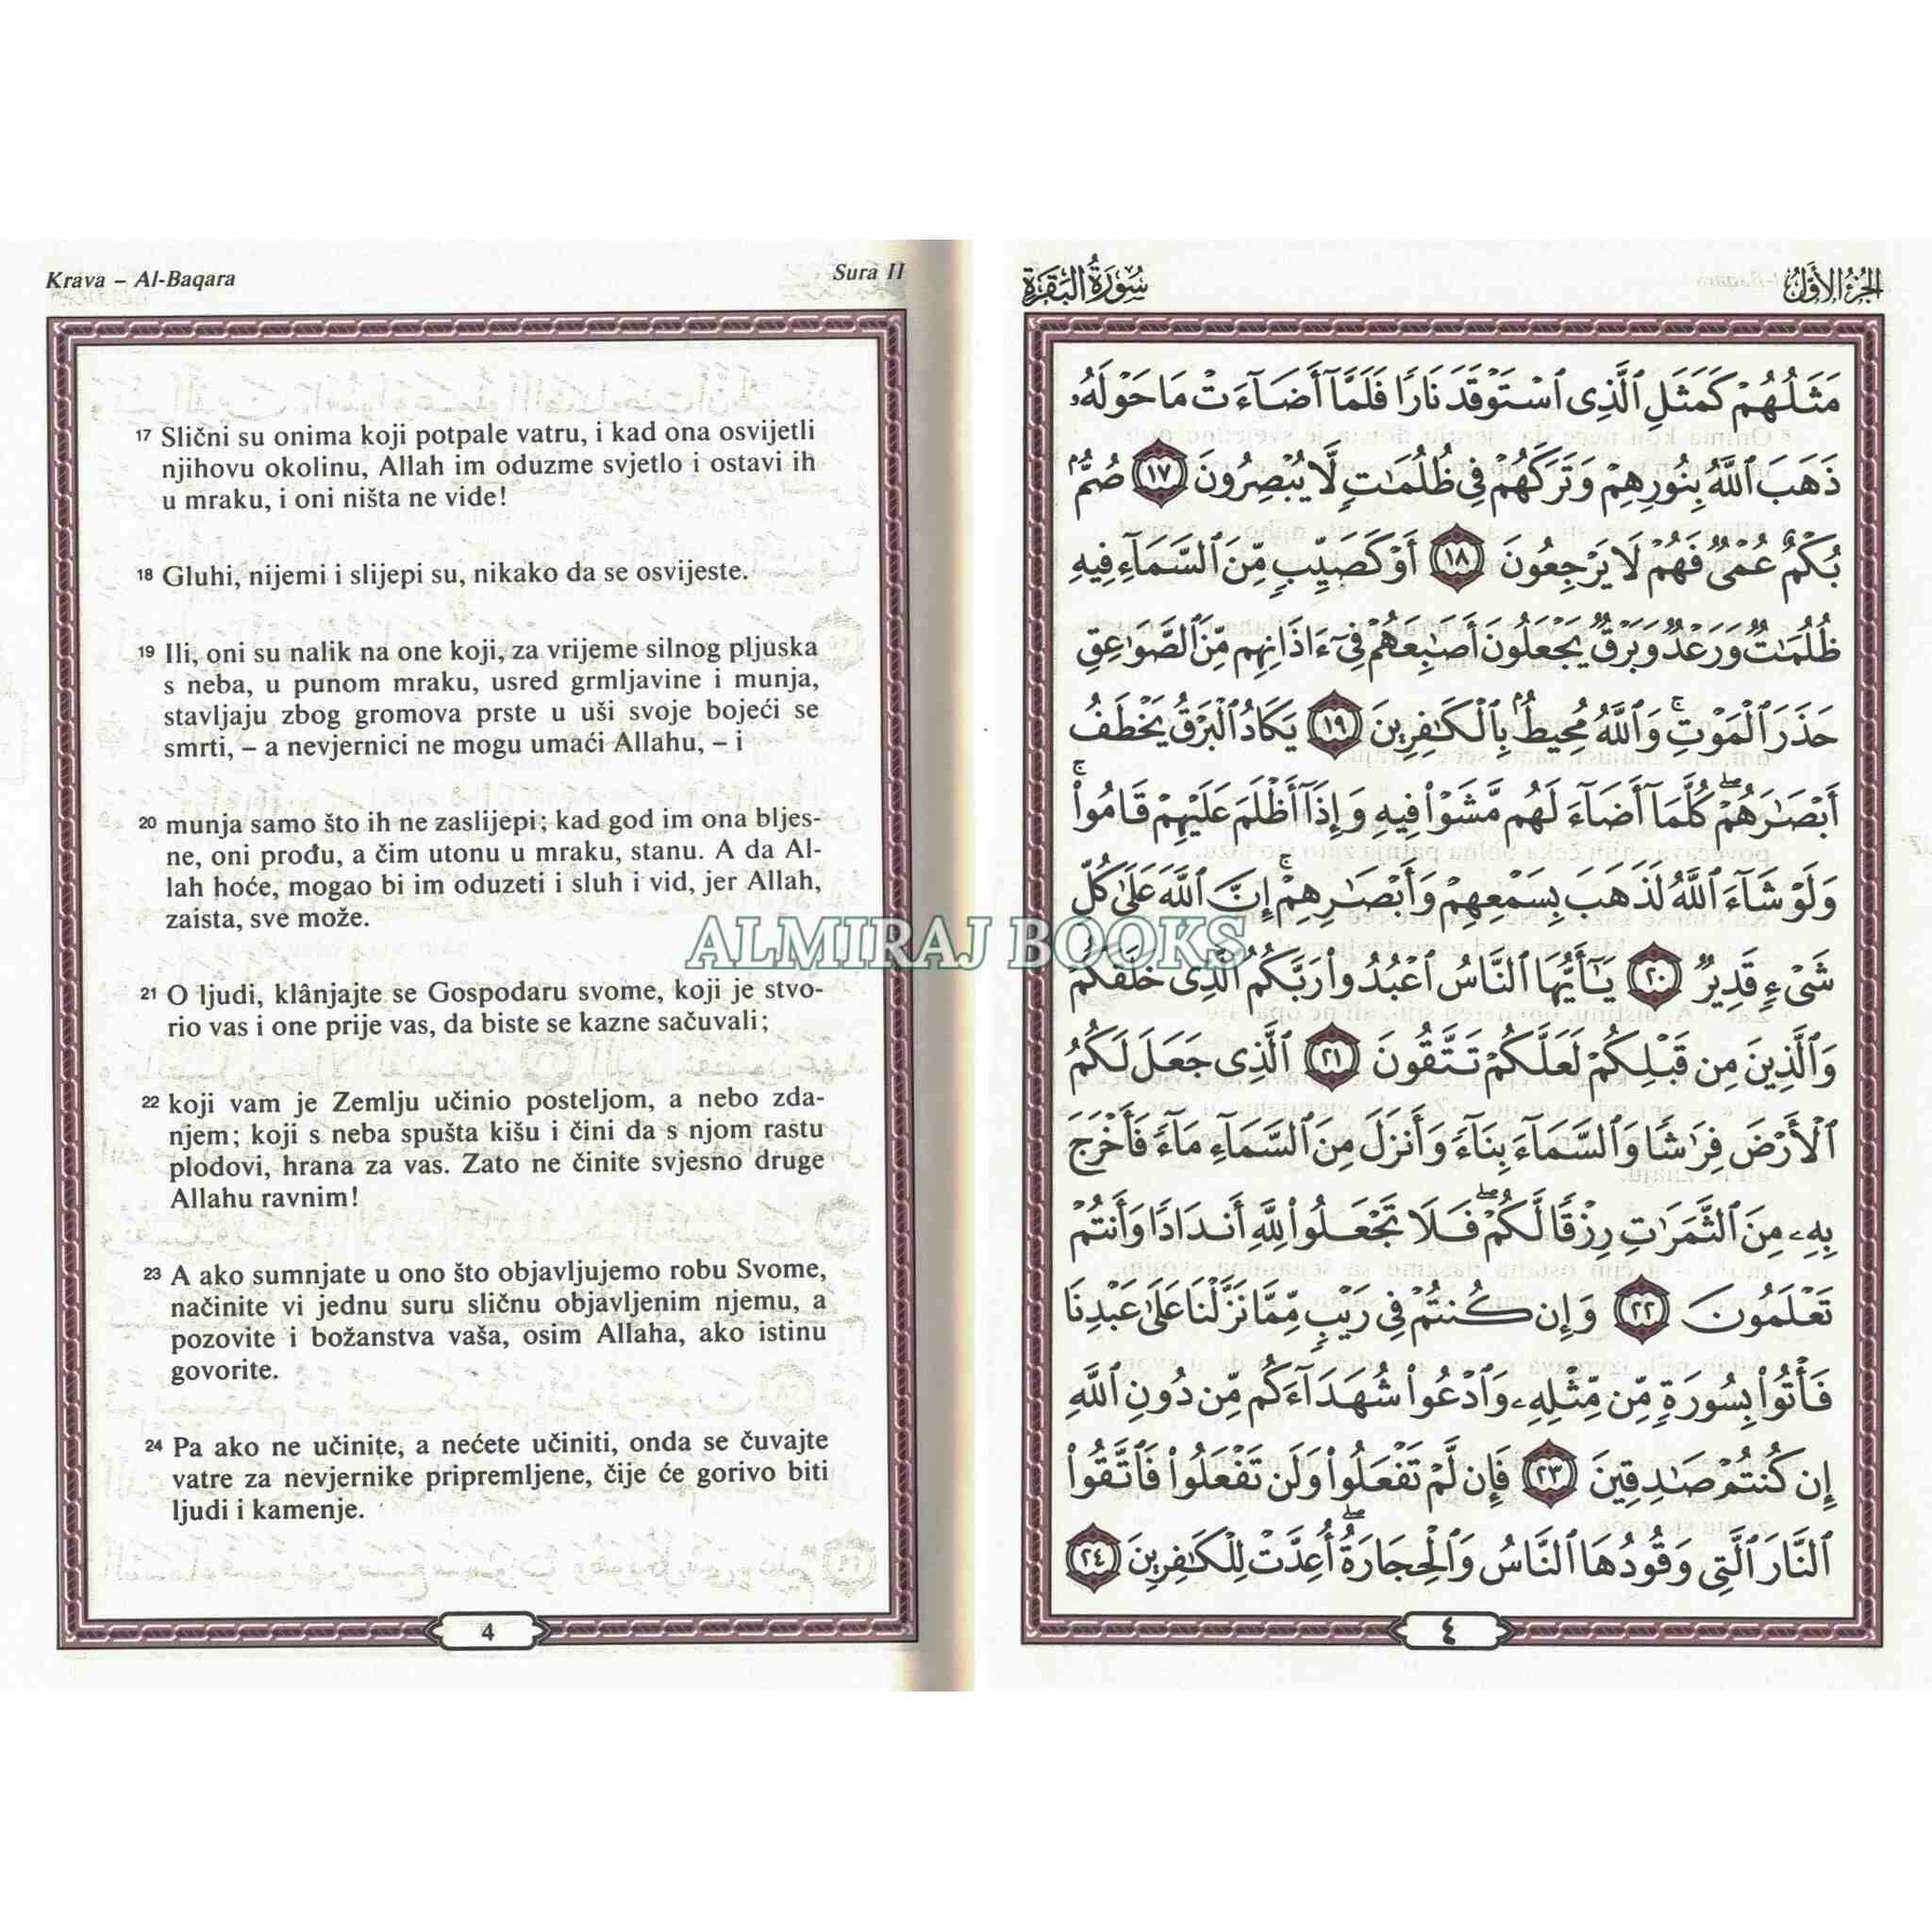 Krava – Al-Baqara
Sura II
17 Slični su onima koji potpale vatru, i kad ona osvijetli
njihovu okolinu, Allah im oduzme svjetlo i ostavi ih
u mraku, i oni ništa ne vide!
18 Gluhi, nijemi i slijepi su, nikako da se osvijeste.
19 Ili, oni su nalik na one koji, za vrijeme silnog pljuska
s neba, u punom mraku, usred grmljavine i munja,
stavljaju zbog gromova prste u uši svoje bojeći se
smrti, – a nevjernici ne mogu umaći Allahu, – i
20 munja samo što ih ne zaslijepi; kad god im ona bljes-
ne, oni prođu, a čim utonu u mraku, stanu. A da Al-
lah hoće, mogao bi im oduzeti i sluh i vid, jer Allah,
zaista, sve može.
21 O ljudi, klânjajte se Gospodaru svome, koji je stvo-
rio vas i one prije vas, da biste se kazne sačuvali;
22 koji vam je Zemlju učinio posteljom, a nebo zda-
njem; koji s neba spušta kišu i čini da s njom rastu
plodovi, hrana za vas. Zato ne činite svjesno druge
Allahu ravnim!
23 A ako sumnjate u ono što objavljujemo robu Svome,
načinite vi jednu suru sličnu objavljenim njemu, a
pozovite i božanstva vaša, osim Allaha, ako istinu
govorite.
24 Pa ako ne učinite, a nećete učiniti, onda se čuvajte
vatre za nevjernike pripremljene, čije će gorivo biti
ljudi i kamenje.
4
ALMIRAJ BOOKS
الجزء الأول
سورة البقرة
مَثَلُهُمْ كَمَثَلِ ٱلَّذِى ٱسْتَوْقَدَ نَارًا فَلَمَّآ أَضَآءَتْ مَا حَوْلَهُۥ
ذَهَبَ ٱللَّهُ بِنُورِهِمْ وَتَرَكَهُمْ فِى ظُلُمَٰتٍ لَّا يُبْصِرُونَ ١٧ صُمٌّۢ
بُكْمٌ عُمْىٌ فَهُمْ لَا يَرْجِعُونَ ١٨ أَوْ كَصَيِّبٍ مِّنَ ٱلسَّمَآءِ فِيهِ
ظُلُمَٰتٌ وَرَعْدٌ وَبَرْقٌ يَجْعَلُونَ أَصَٰبِعَهُمْ فِىٓ ءَاذَانِهِم مِّنَ ٱلصَّوَٰعِقِ
حَذَرَ ٱلْمَوْتِ ۚ وَٱللَّهُ مُحِيطٌۢ بِٱلْكَٰفِرِينَ ١٩ يَكَادُ ٱلْبَرْقُ يَخْطَفُ
أَبْصَٰرَهُمْ ۖ كُلَّمَآ أَضَآءَ لَهُم مَّشَوْا۟ فِيهِ وَإِذَآ أَظْلَمَ عَلَيْهِمْ قَامُوا۟ ۚ
وَلَوْ شَآءَ ٱللَّهُ لَذَهَبَ بِسَمْعِهِمْ وَأَبْصَٰرِهِمْ ۚ إِنَّ ٱللَّهَ عَلَىٰ كُلِّ
شَىْءٍ قَدِيرٌ ٢٠ يَٰٓأَيُّهَا ٱلنَّاسُ ٱعْبُدُوا۟ رَبَّكُمُ ٱلَّذِى خَلَقَكُمْ
وَٱلَّذِينَ مِن قَبْلِكُمْ لَعَلَّكُمْ تَتَّقُونَ ٢١ ٱلَّذِى جَعَلَ لَكُمُ
ٱلْأَرْضَ فِرَٰشًا وَٱلسَّمَآءَ بِنَآءً وَأَنزَلَ مِنَ ٱلسَّمَآءِ مَآءً فَأَخْرَجَ
بِهِۦ مِنَ ٱلثَّمَرَٰتِ رِزْقًا لَّكُمْ ۖ فَلَا تَجْعَلُوا۟ لِلَّهِ أَندَادًا وَأَنتُمْ
تَعْلَمُونَ ٢٢ وَإِن كُنتُمْ فِى رَيْبٍ مِّمَّا نَزَّلْنَا عَلَىٰ عَبْدِنَا
فَأْتُوا۟ بِسُورَةٍ مِّن مِّثْلِهِۦ وَٱدْعُوا۟ شُهَدَآءَكُم مِّن دُونِ ٱللَّهِ
إِن كُنتُمْ صَٰدِقِينَ ٢٣ فَإِن لَّمْ تَفْعَلُوا۟ وَلَن تَفْعَلُوا۟ فَٱتَّقُوا۟
ٱلنَّارَ ٱلَّتِى وَقُودُهَا ٱلنَّاسُ وَٱلْحِجَارَةُ ۖ أُعِدَّتْ لِلْكَٰفِرِينَ ٢٤
٤